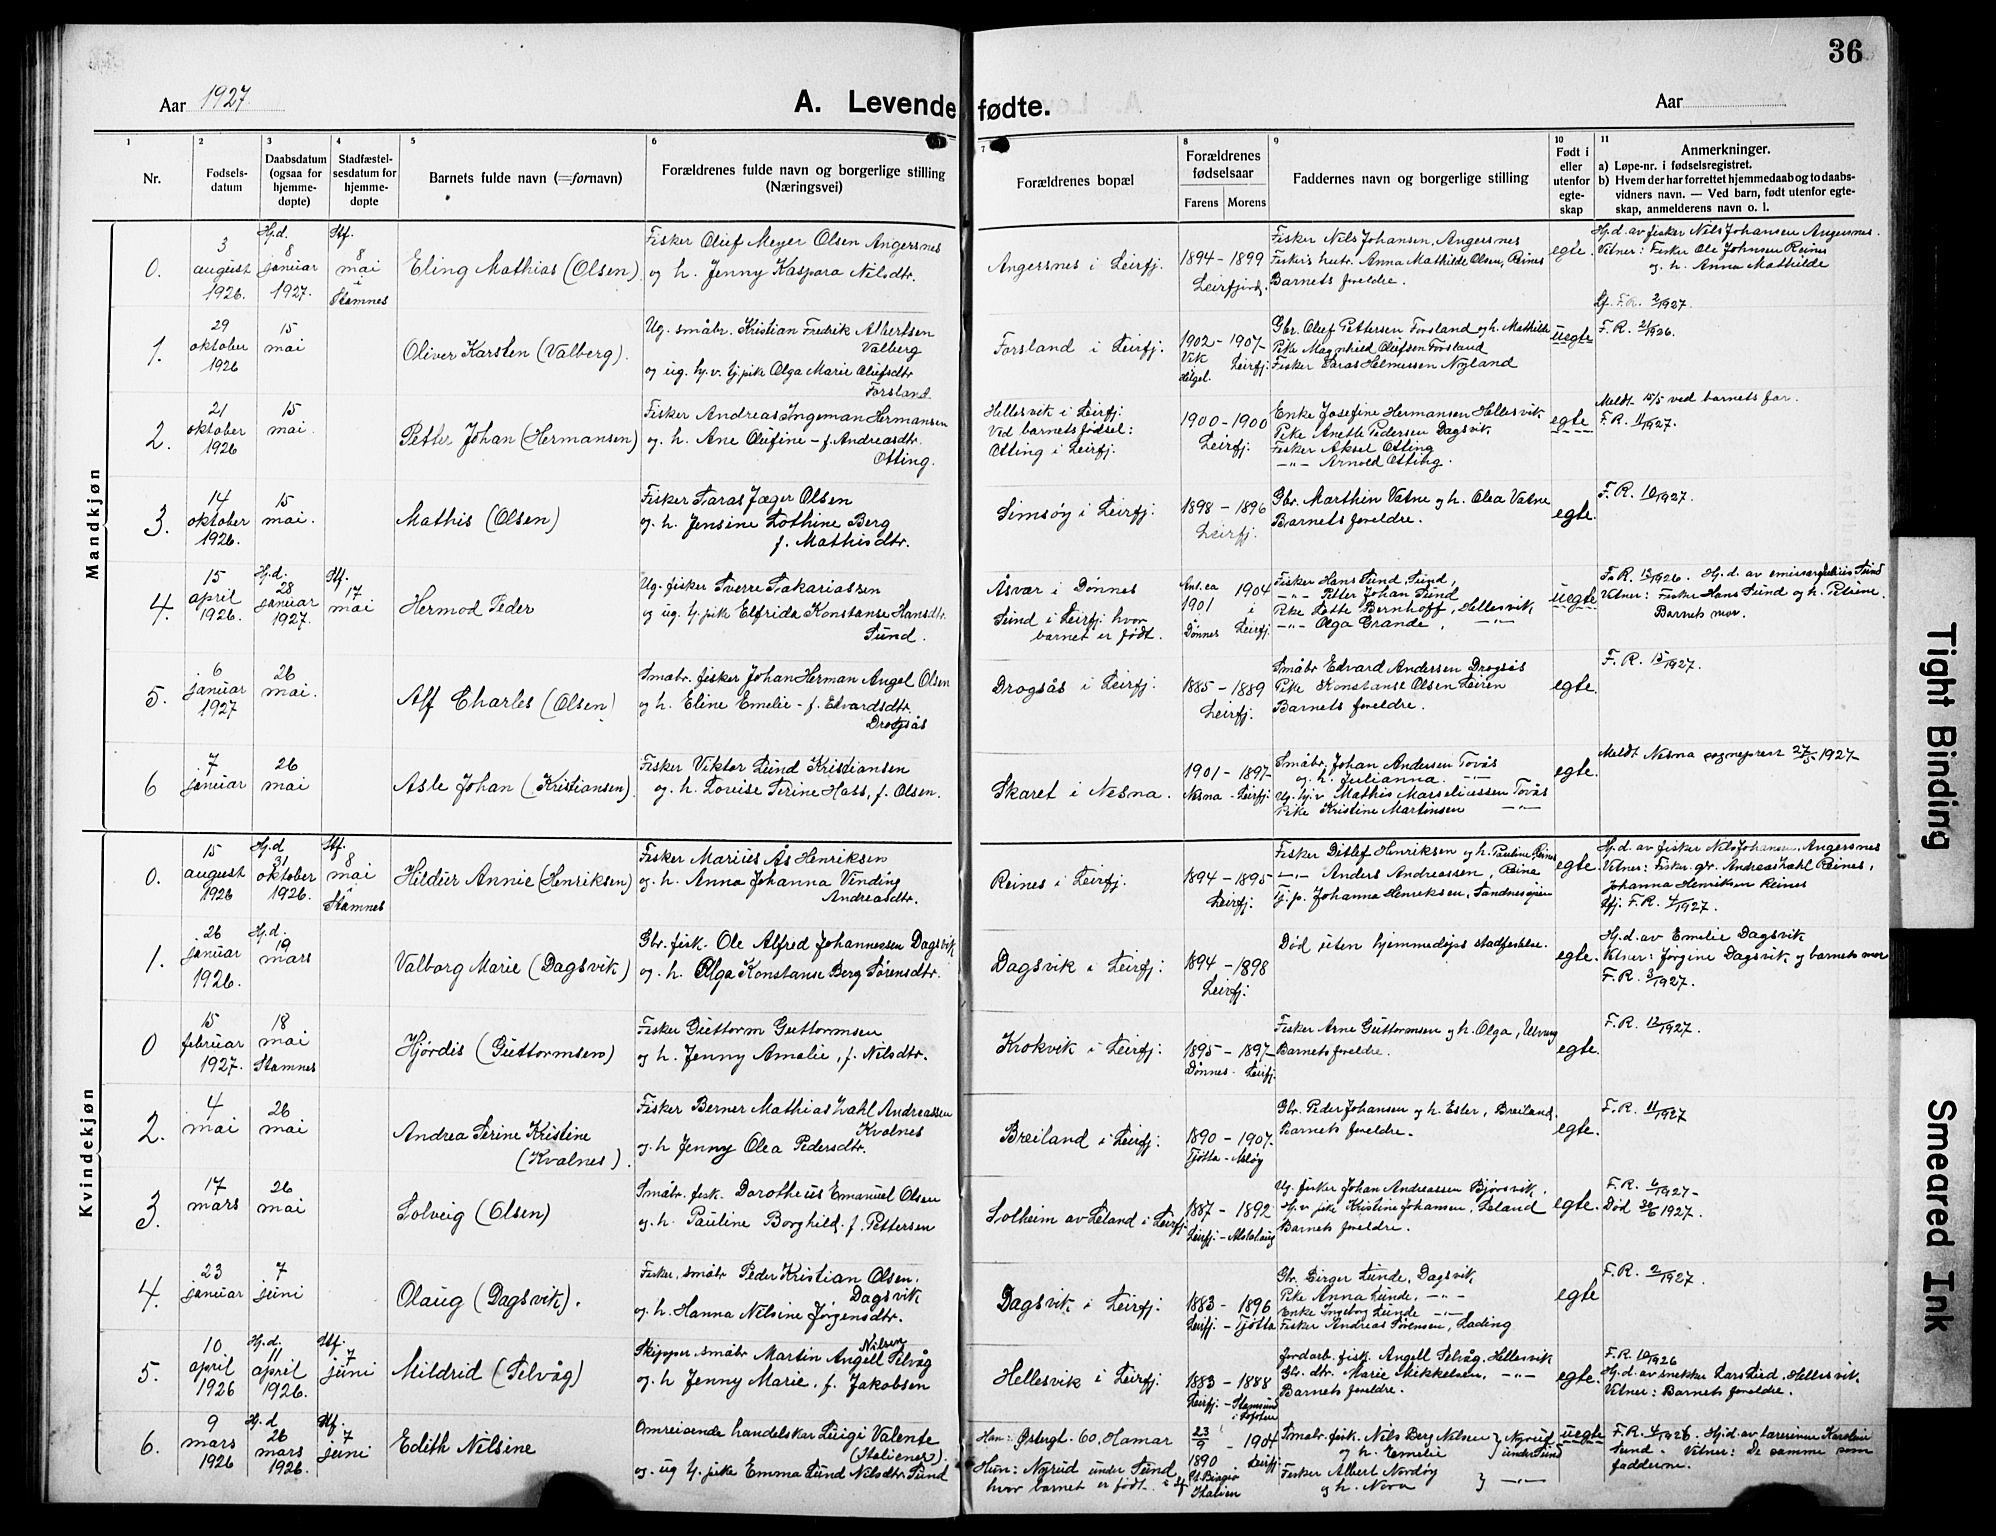 36
Aar 1927.
A. Levendefødte.
Aar
1
2
3
4
5
6
7
8
9
10
11
Nr.
Fødsels-
datum
Daabsdatum
(ogsaa for
hjemme-
døpte)
Stadfæstel-
sesdatum for
hjemme-
døpte
Barnets fulde navn (=fornavn)
Forældrenes fulde navn og borgerlige stilling
(Næringsvei)
Forældrenes bopæl
Forældrenes
fødselsaar
Farens
Morens
Faddernes navn og borgerlige stilling
Født i
eller
utenfor
egte-
skap
Anmerkninger.
a) Løpe-nr. i fødselsregistret.
b) Hvem der har forrettet hjemmedaab og to daabs-
vidners navn. — Ved barn, født utenfor egte-
skap, anmelderens navn o. l.
Mandkjøn
0.
3
august
1926.
Hj.d.
8
januar
1927.
Stf.
8
mai
i
Stamnes
Eling Mathias (Olsen)
Fisker Oluf Meyer Olsen Angersnes
og h. Jenny Kaspara Nilsdtr.
Angersnes i Leirfj.
1894 - 1899
Leirfjord.
Fisker Nils Johansen, Angersnes
Fisker's hustr. Anna Mathilde Olsen, Reines
Barnets foreldre.
egte.
Hj.d. av fisker Nils Johansen Angersnes.
Vitner: Fisker Ole Johnsen Reines
og h. Anna Mathilde
Lf. F.R. 2/1927.
1.
29
oktober
1926
15
mai
Oliver Karsten (Valberg).
Ug. småbr. Kristian Fredrik Albertsen
Valberg
og ug. hj.v. tj.pik Olga Marie Olufsdtr
Forsland.
Forsland i Leirfj.
1902 - 1907-
Vik
Helgel.
Leirfj.
Gbr. Oluf Pettersen Forsland og h. Mathilde
Pike Magnhild Olufsen Forsland
Fisker Paras Helmersen Nyland
uegte
F.R. 21/1926.
2.
21
oktober
1926
15
mai.
Petter Johan (Hermansen)
Fisker Andreas Ingeman Hermansen
og h. Ane Olufine - f. Andreasdtr.
Otting.
Hellesvik i Leirfj.
Ved barnets fødsel:
Otting i Leirfj.
1900 - 1900
Leirfj.
Enke Josefine Hermansen Hellesvik
Pike Anette Pedersen Dagsvik
Fisker Aksel Otting
-"- Arnold Otting.
egte
Meldt 15/5 ved barnets far.
F.R. 11/1927.
3.
14
oktober
1926.
15
mai.
Mathis (Olsen)
Fisker Saras Jæger Olsen
og h. Jensine Lothine Berg
f. Mathisdtr.
Simsøy i Leirfj.
1898 - 1896
Leirfj.
Gbr. Marthin Vatne og h. Olea Vatne
Barnets foreldre.
egte.
F.R. 10/1927.
4.
15
april
1926.
Hj.d.
28
januar
1927.
Stf.
17
mai
Hermod Peder
Ug. fisker Sverre Sakariassen
og ug. tj.pik Elfrida Konstanse Hansdtr.
Sund.
Åsvær i Dønnes
Sund i Leirfj. hvor
barnet er født.
Ant. ca
1901
Dønnes
1904
i
Leirfj.
Fisker Hans Sund, Sund,
-"- Petter Johan Sund
Pike Lotte Bernhoff, Hellesvik
-"- Olga Grande, -"-
uegte
F.R. 13/1926. Hj.d. av emissær Julius Sund
Vitner: Fisker Hans Sund og h. Petrine.
Barnets mor.
5.
6
januar
1927
26
mai.
Alf Charles (Olsen)
Småbr. fisker Johan Herman Angel Olsen
og h. Eline Emelie - f. Edvardsdtr.
Drogsås
Drogsås i Leirfj.
1885 - 1889
Leirfj.
Småbr Edvard Andersen Drogsås
Pike Konstanse Olsen Leiren
Barnets foreldre.
egte.
F.R. 15/1927.
6
7
januar
26
mai
Asle Johan (Kristiansen).
Fisker Viktor Lund Kristiansen
og h. Lovise Serine Hass, f. Olsen.
Skaret i Nesna.
1901 - 1897-
Nesna - Leirfj.
Småbr. Johan Andersen Tovås
og h. Julianna. -"-
Ug. hj.v. Mathis Marseliussen Tovås
Pike Kristine Martinsen -"-
egte.
Meldt Nesna sogneprest 27/5-1927-
Kvindekjøn
0.
15
august
1926
Hj.d
31
oktober
1926.
Stf.
8
mai
i
Stamnes
Hildur Annie (Henriksen)
Fisker Marius Ås Henriksen
og h. Anna Johanna Vinding
Andreasdtr.
Reines i Leirfj.
1894 - 1895-
Leirfj.
Fisker Ditlef Henriksen og h. Pauline, Reines
-"- Anders Andreassen, Reine
Tj. p. Johanna Henriksen, Sandnessjøen
egte.
Hj.d. av fisker Nils Johansen, Angersnes
Vitner: Fisker gr. Andreas Zahl Reines,
Johanna Henriksen Reines
Lfj. F.R. 4/1927.
1.
26
januar
1926.
Hj.d.
19
mars
Valborg Marie (Dagsvik)
Gbr. fisk. Ole Alfred Johannessen Dagsvik
og h. Olga Konstanse Berg Sørensdtr.
Dagsvik i Leirfj.
1894 - 1898
Leirfj.
Død uten hjemmedåps stadfestelse.
egte.
Hj.d. av Emelie Dagsvik
Vitner: Jørgine Dagsvik og barnets mor
F.R. 3/1927.
0
15
februar
1927.
18
mai
Stamnes
Hjørdis (Guttormsen)
Fisker Guttorm Guttormsen
og h. Jenny Amalie, f. Nilsdtr.
Krokvik i Leirfj.
1895 - 1897-
Dønnes - Leirfj.
Fisker Arne Guttormsen og h. Olga, Ulvang
Barnets foreldre.
egte.
F.R. 12/1927.
2.
4
mai
26
mai
Andrea Serine Kristine
(Kvalnes).
Fisker Berner Mathias Zahl Andreassen
Kvalnes
og h Jenny Olea Pedersdtr.
Breiland i Leirfj.
1890 - 1907.
Tjøtta - Asløy
Gbr. Peder Johansen og h. Ester, Breiland.
Barnets foreldre.
egte.
F.R. 11/1927
3.
17
mars
26
mai
Solveig (Olsen)
Småbr. fisk. Dorotheus Emanuel Olsen
og h. Pauline Borghild f. Pettersen
Solheim av Leland i Leirfj.
1887 - 1892
Leirfj. - Alstahaug
Ug. fisker Johan Andreassen Bjørsvik.
Hj.v pike Kristine Johansen, Leland
Barnets foreldre.
egte.
F.R. 6/1927-
Død 30/6 1927.
4.
23
januar
7
juni
Olaug (Dagsvik).
Fisker, småbr Peder Kristian Olsen.
Dagsvik
og h. Hanna Nilsine Jørgensdtr.
Dagsvik i Leirfj.
1883 - 1896
Leirfj. - Tjøtta
Gbr. Birger Lunde, Dagsvik
Pike Anna Lunde, -"-
Enke Ingeborg Lunde -"-
Fisker Andreas Sørensen, Lading
egte
F.R. 2/1927.
5.
10
april
1926
Hj.d.
11
april
1926.
Stf.
7
juni
Mildrid (Selvåg)
Skipper, småbr Martin Angell Nilsen Selvåg
og h Jenny Marie, f. Jakobsen
Hellesvik i Leirfj.
1883 - 1888
Leirfj. - Stamsund
i Lofoten
Jordarb. fisk. Angell Selvåg, Hellesvik
Gbr. dtr. Marie Mikkelsen, -"-
Barnets foreldre.
egte.
F.R. 10/1926
Hj.d. av snekker Lars Lied, Hellesvik.
Vitner: Barnets foreldre.
6.
9
mars
1926
Hj.d
26
mars
1926.
Stf.
7
juni
Edith Nilsine
Omreisende handelskar Luigi Valente
(Italiener)
og ug tj. pike Emma Sund Nilsdtr. Sund
Han: Østergt. 60, Hamar
Hun: Nyrud under Sund
hvor barnet er født. i Lf
23/9
1890
St Biagio
Italien
- 1904
Leirfj.
Småbr. fisk. Nils Berg Nilsen } Nyrud
og h. Emelie under Sund
Fisker Albert Nordøy } -"-
og h. Nora
uegte
F.R. 4/1926. Hj.d av lærerinne Karoline
Sund. Vitner: De samme som
fadderne.
Tight Binding
Smeared Ink